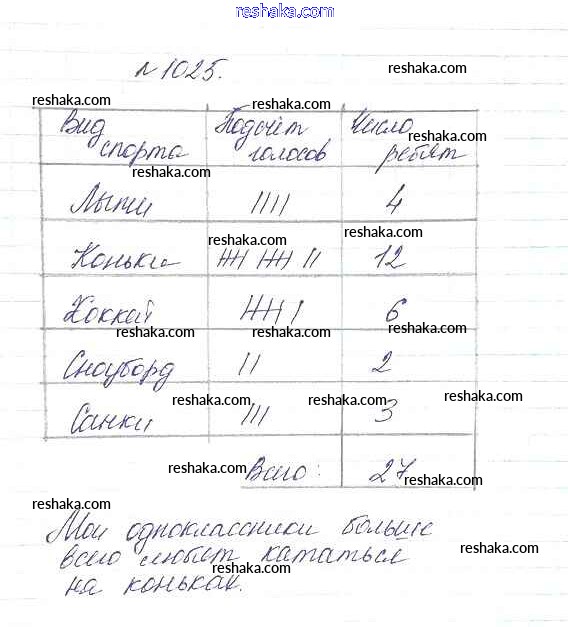 reshaka.com
№ 1025.
reshaka.com
reshaka.com
reshaka.com
Вид спорта
Подсчёт голосов
Число ребят
reshaka.com
reshaka.com
Лыжи
||||
4
reshaka.com
reshaka.com
Коньки
|||| |||| ||
12
Хоккей
|||| |
6
reshaka.com
reshaka.com
Сноуборд
||
2
reshaka.com
reshaka.com
reshaka.com
Санки
|||
3
reshaka.com
Всего:
27
reshaka.com
reshaka.com
Мои одноклассники больше
всего любят кататься
reshaka.com
на коньках.
reshaka.com